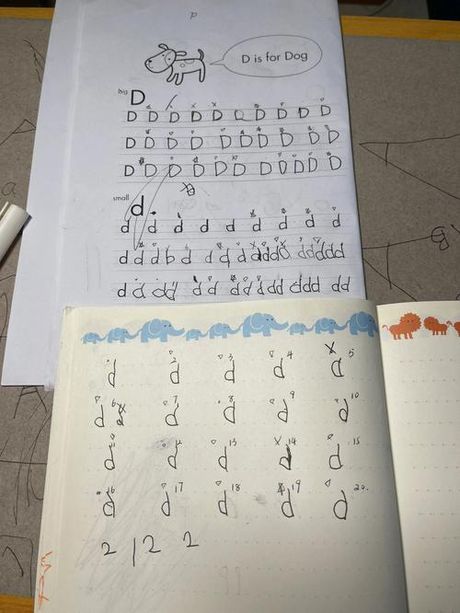 P
D is for Dog
big D
D D D D D D D D D D
D D D D D D D D D D D
D D D D D D D D D D D
small d
d d d d d d d d d
d d d b d d d d d d d d d d d d d
d d d d d d d d d d d d d d d d
d d 2 d 3 d 4 d 5
d 6 d 7 d 8 d 9 d 10
d d d 13 d 14 d 15
d 16 d 17 d 18 d 19 d 20
2 1 2 2